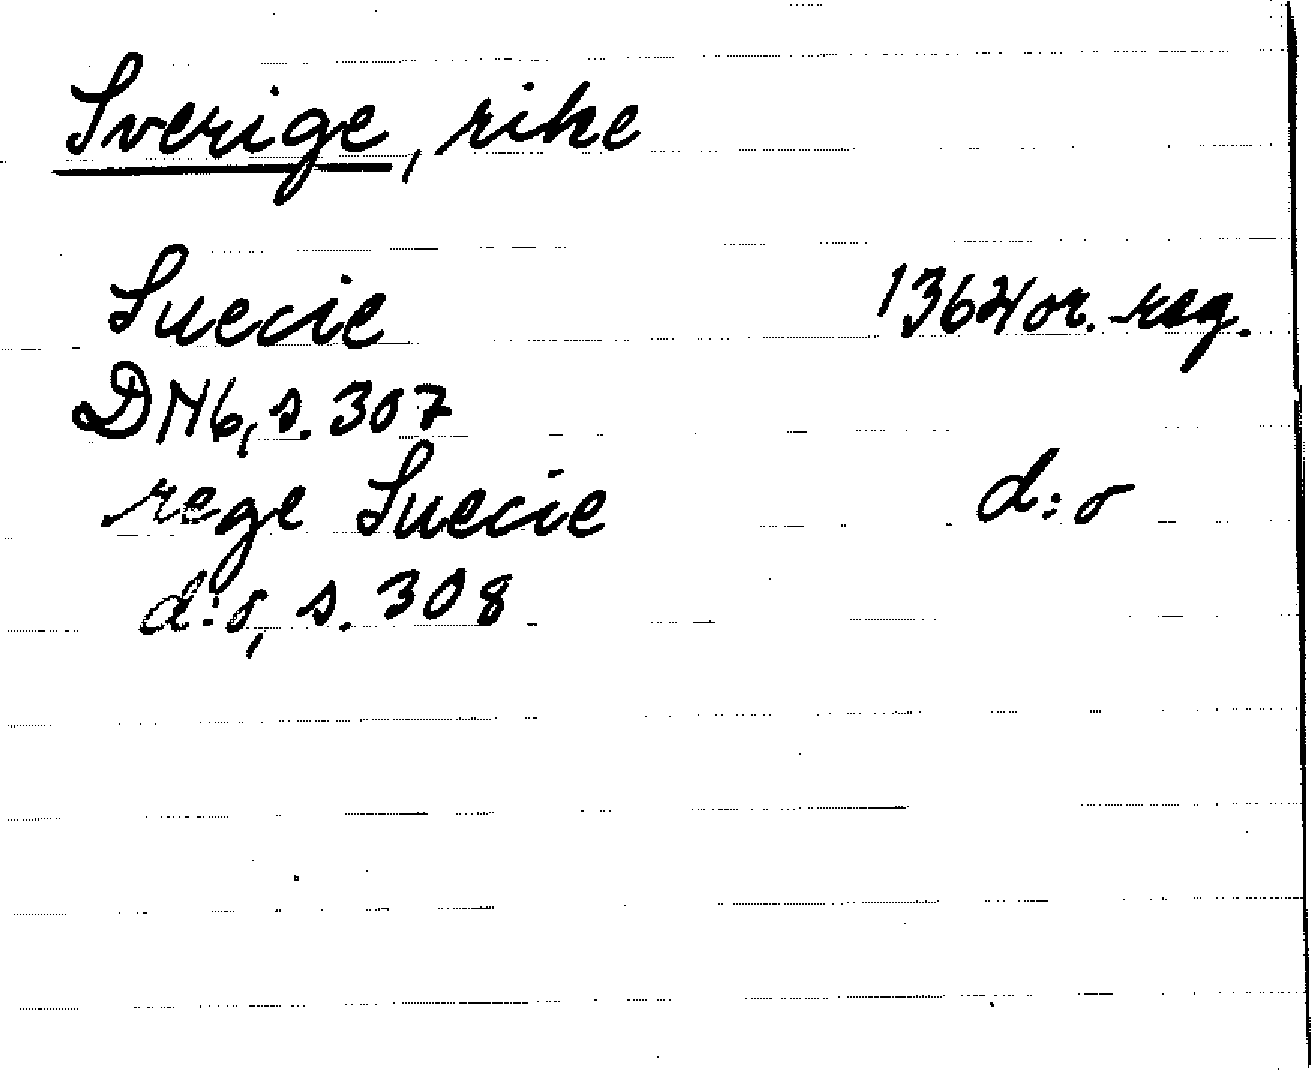 Sverige, rike
Suecie 1364 or. reg.
DN6, s. 307
rege Suecie d:o
d:o, s. 308